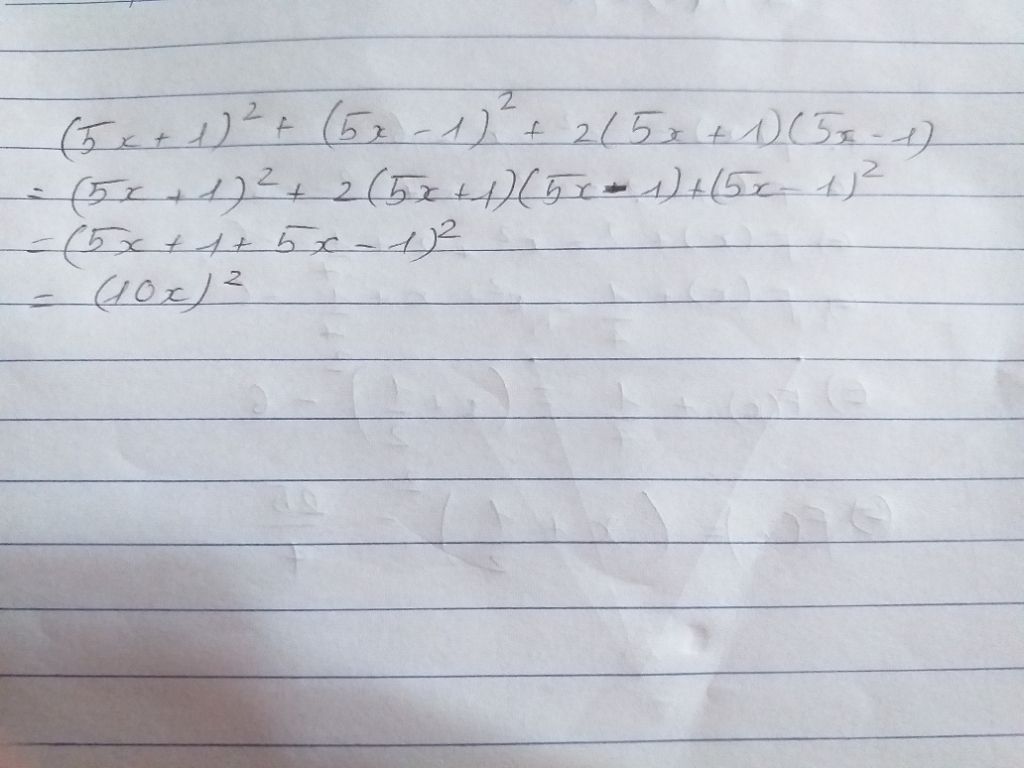 (5x + 1)² + (5x - 1)² + 2(5x + 1)(5x - 1)
= (5x + 1)² + 2(5x + 1)(5x - 1) + (5x - 1)²
= (5x + 1 + 5x - 1)²
= (10x)²